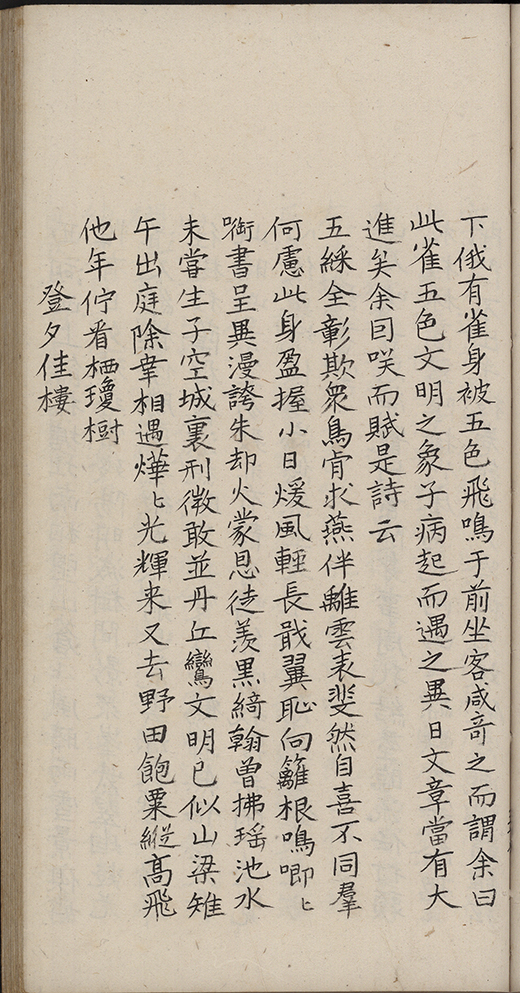 下俄有雀身被五色飛鳴于前坐客咸竒之而謂余曰
此雀五色文明之象子病起而遇之異日文章當有大
進矣余囙咲而賦是詩云
五綵全彰欺衆鳥肯求燕伴離雲表斐然自喜不同羣
何慮此身盈握小日煖風輕長戢翼恥向籬根鳴唧〻
啣書呈異漫誇朱却火蒙恩徒羡黒綺翰曽拂瑶池水
未甞生子空城裏刑徴敢並丹丘鸞文明已似山梁雉
午出庭除幸相遇燁〻光輝来又去野田飽粟縱髙飛
他年佇看栖瓊樹
登夕佳樓